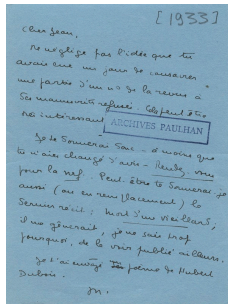 [1933]
Cher Jean,
Ne néglige pas l'idée que tu
avais eue un jour de consacrer
une partie d'un n° de la revue à
Ses manuscrits refusés. Ce peut être
très intéressant
ARCHIVES PAULHAN
Je te donnerai Sauf - à moins que
tu n'aies changé d'avis - Rendez-vous
pour la nrf. Peut-être te donnerai-je
aussi (ou en remplacement) le
dernier récit : Mort d'un vieillard,
il me gênerait, je ne sais trop
pourquoi, de le voir publié ailleurs.
Je t'ai envoyé poème de Hubert
Dubois.